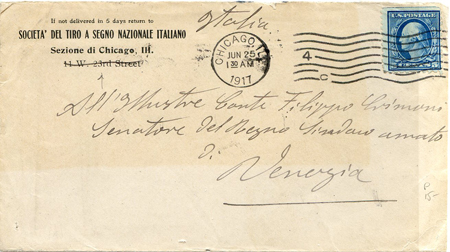 If not delivered in 5 days return to
SOCIETA' DEL TIRO A SEGNO NAZIONALE ITALIANO
Sezione di Chicago, Ill.
11 W. 23rd Street
Italia
CHICAGO, ILL.
JUN 25
1917
4
C
U.S. POSTAGE
All'Illustre Conte Filippo Grimani
Senatore del Regno Sindaco amato
di
Venezia